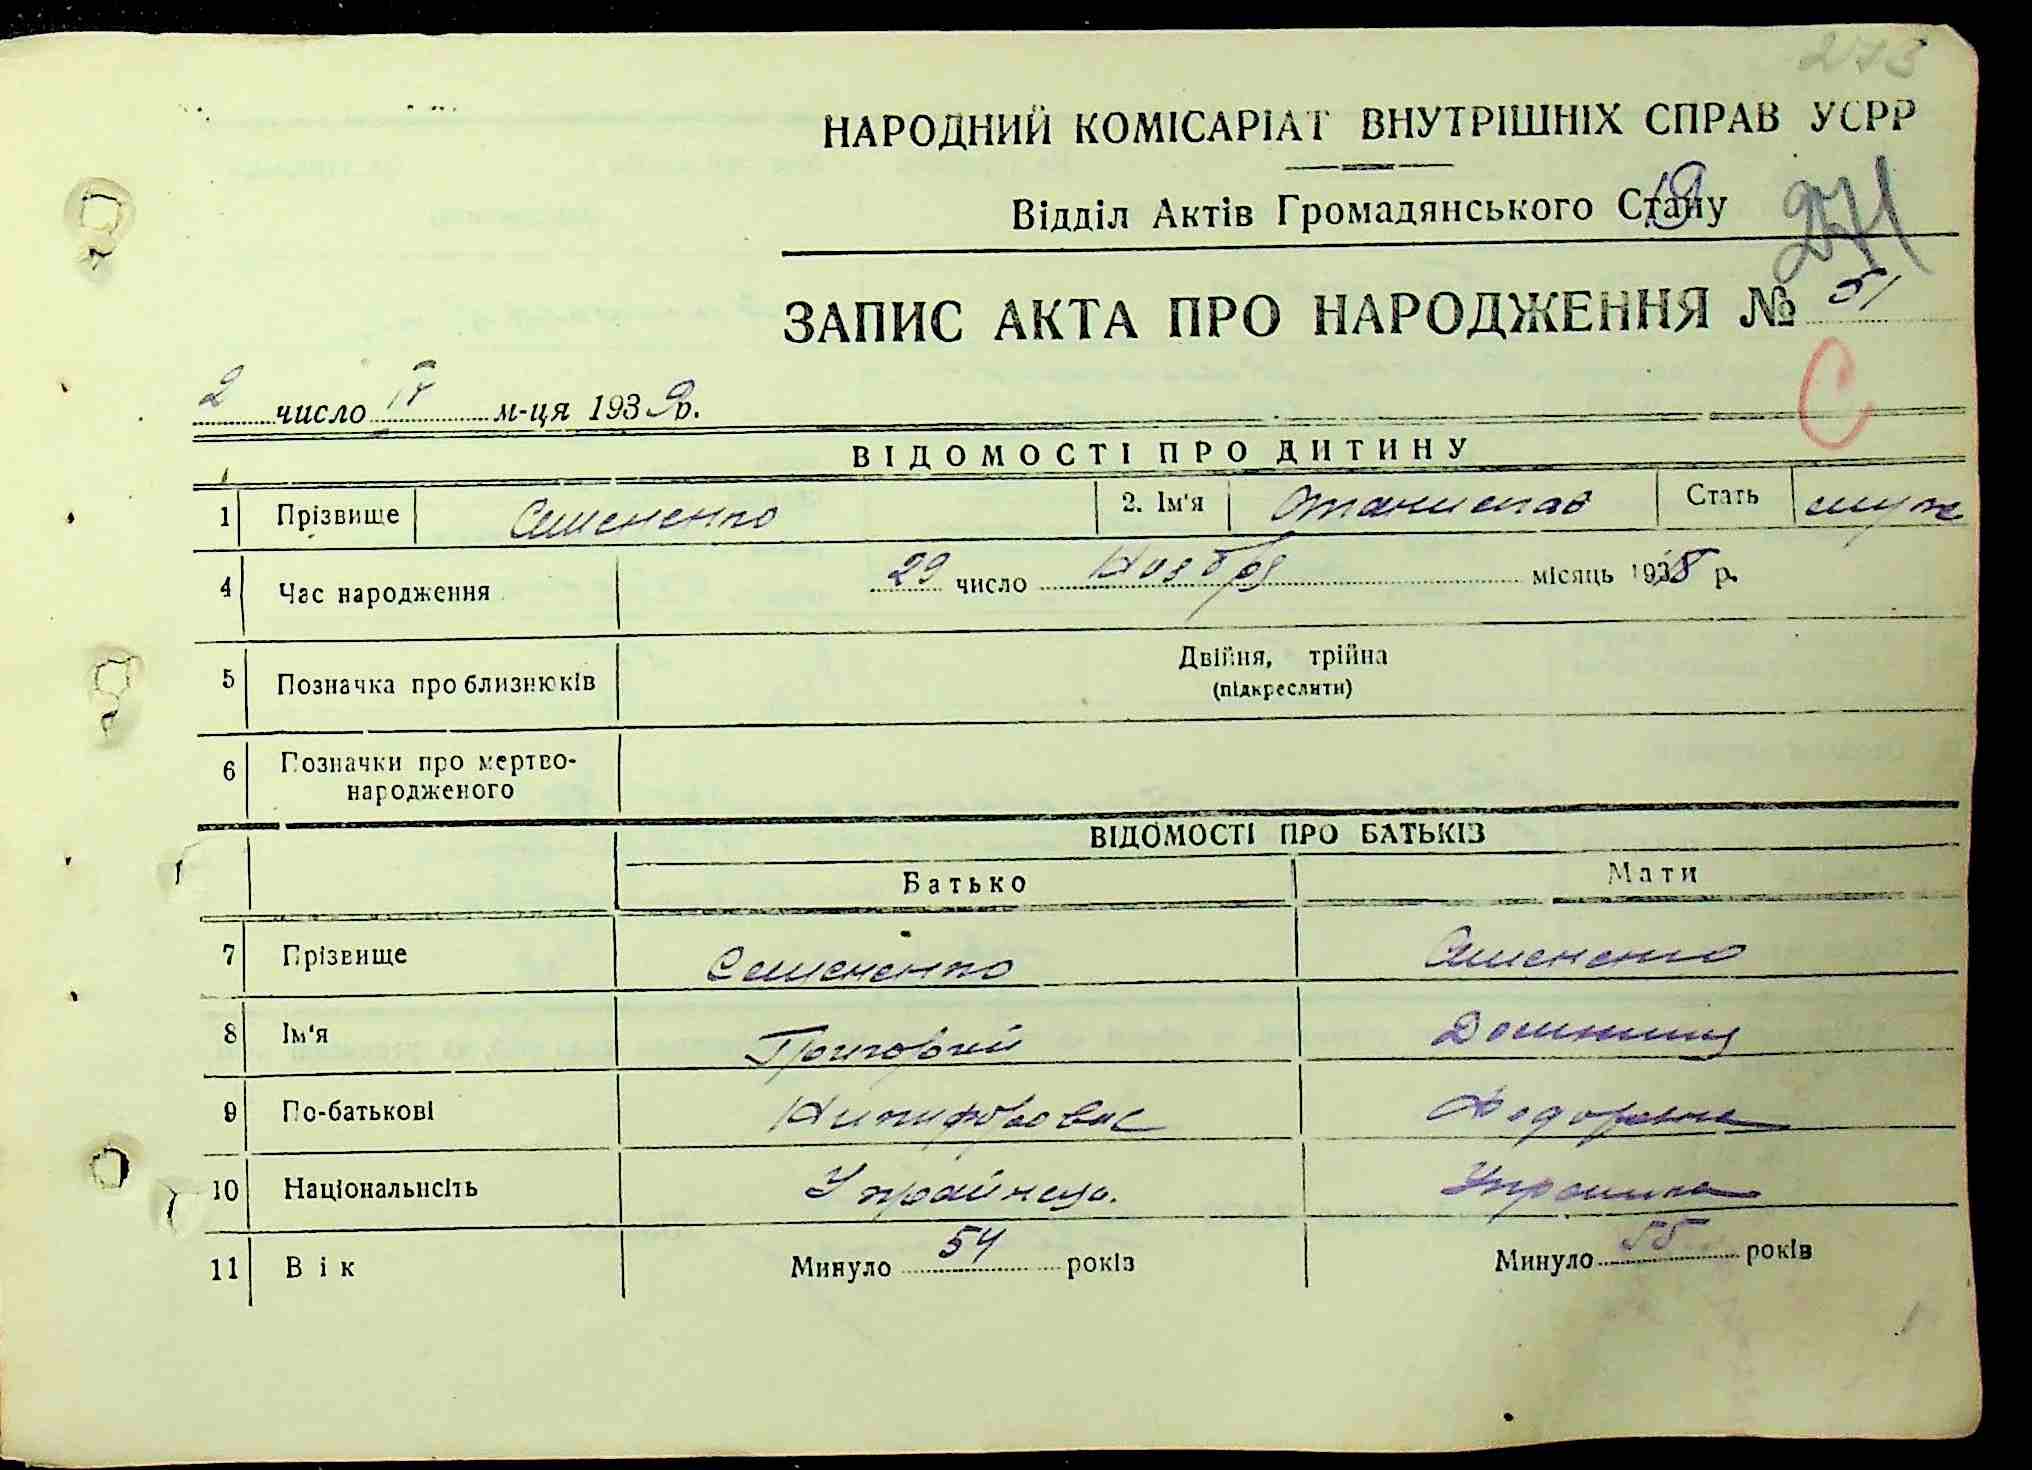 273
НАРОДНИЙ КОМІСАРІАТ ВНУТРІШНІХ СПРАВ УСРР
Відділ Актів Громадянського Стану
271
ЗАПИС АКТА ПРО НАРОДЖЕННЯ № 51
С
2 число IV м-ця 1939 р.
ВІДОМОСТІ ПРО ДИТИНУ
1 Прізвище Семененко 2. Ім'я Станислав Стать муж
4 Час народження 29 число Ноября місяць 1938 р.
5 Позначка про близнюків Двійня, трійна
(підкреслити)
6 Позначки про мертво-
народженого
ВІДОМОСТІ ПРО БАТЬКІВ
Батько Мати
7 Прізвище Семененко Семененко
8 Ім'я Григорий Домникия
9 По-батькові Никифорович Федоровна
10 Національність Украйнець. Украинка
11 Вік Минуло 54 років Минуло 55 років